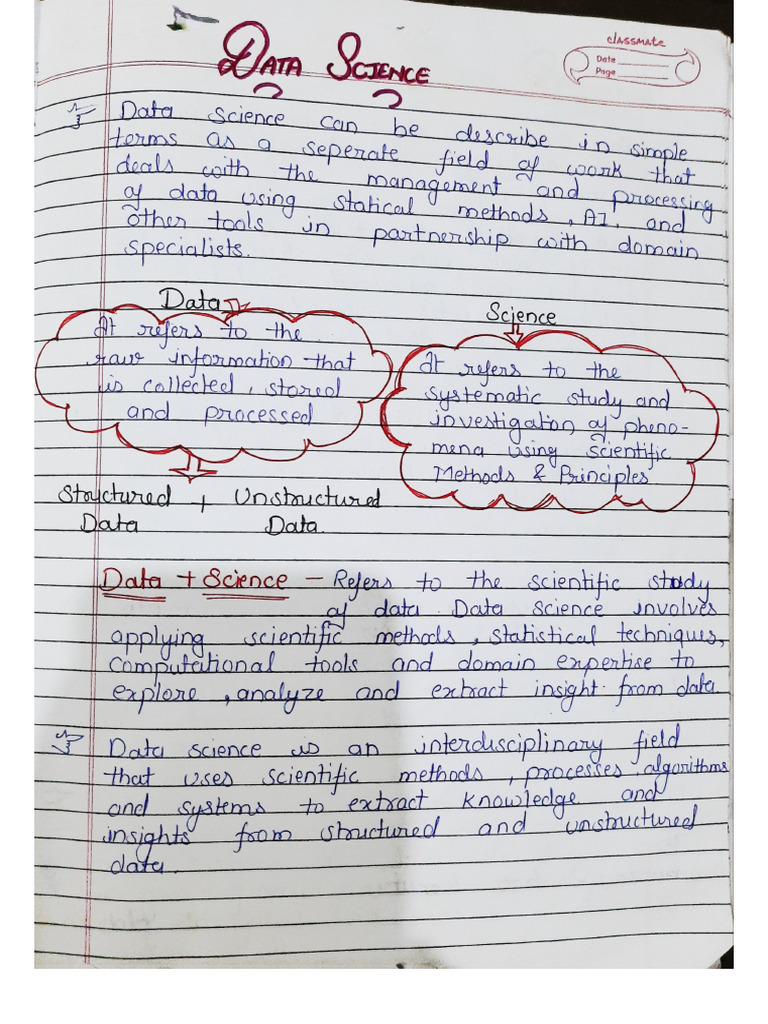 DATA SCIENCE
classmate
Date
Page
Data science can be describe in simple
terms as a seperate field of work that
deals with the management and processing
of data using statical methods, AI, and
other tools in partnership with domain
specialists.
Data
It refers to the
raw information that
is collected, stored
and processed
Structured + Unstructured
Data Data
Science
It refers to the
systematic study and
investigation of pheno-
mena using Scientific
Methods & Principles
Data + Science - Refers to the scientific study
of data. Data Science involves
applying scientific methods, statistical techniques,
computational tools and domain expertise to
explore, analyze and extract insight from data.
Data science is an interdisciplinary field
that uses scientific methods, processes, algorithms
and systems to extract knowledge and
insights from structured and unstructured
data.